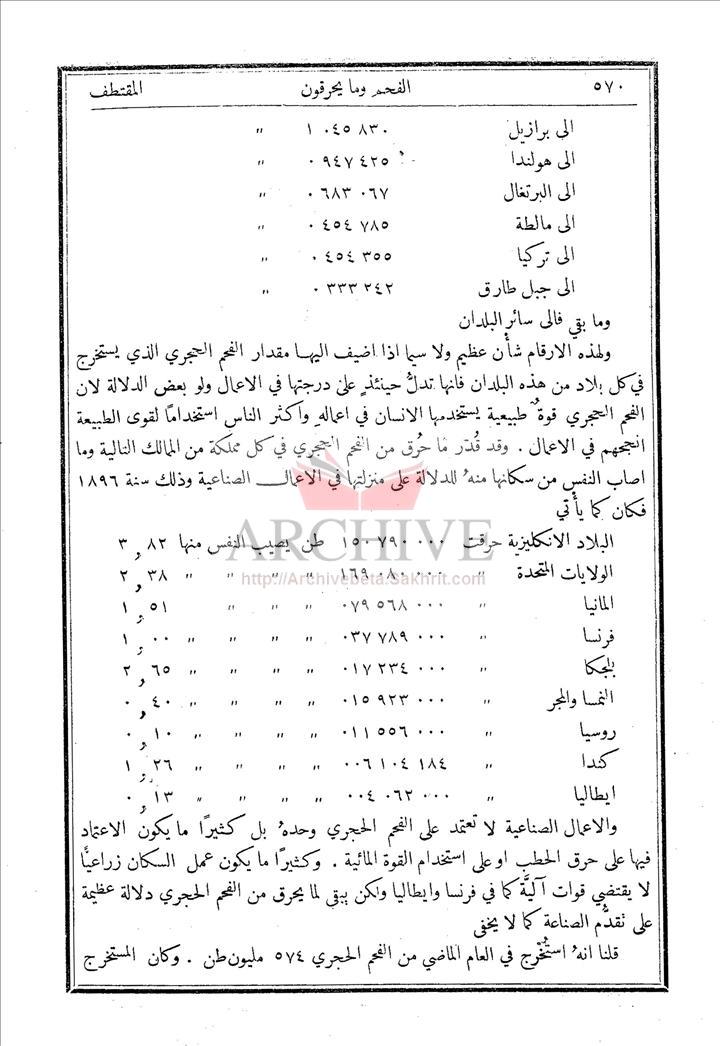 ٥٧٠ الفحم وما يحرقون المقتطف
الى برازيل ١ ٠٤٥ ٨٣٠ "
الى هولندا ٠ ٩٤٧ ٤٢٥ "
الى البرتغال ٠ ٦٨٣ ٠٦٧ "
الى مالطة ٠ ٤٥٤ ٧٨٥ "
الى تركيا ٠ ٤٥٤ ٣٥٥ "
الى جبل طارق ٠ ٣٣٣ ٢٤٢ "
وما بقي فالى سائر البلدان
ولهذه الارقام شأن عظيم ولا سيما اذا اضيف اليها مقدار الفحم الحجري الذي يستخرج
في كل بلاد من هذه البلدان فانها تدلُّ حينئذٍ على درجتها في الاعمال ولو بعض الدلالة لان
الفحم الحجري قوةٌ طبيعية يستخدمها الانسان في اعماله واكثر الناس استخدامًا لقوى الطبيعة
انجحهم في الاعمال . وقد قُدّر ما حُرق من الفحم الحجري في كل مملكة من الممالك التالية وما
اصاب النفس من سكانها منهُ للدلالة على منزلتها في الاعمال الصناعية وذلك سنة ١٨٩٦
فكان كما يأتي
ARCHIVE
البلاد الانكليزية حرقت ١٥٠ ٧٩٠ ٠٠٠ طن يصيب النفس منها ٣,٨٢
http://Archivebeta.Sakhrit.com
الولايات المتحدة " ١٦٩ ٠٨٠ ٠٠٠ " " " " ٢,٣٨
المانيا " ٠٧٩ ٥٦٨ ٠٠٠ " " " ١,٥١
فرنسا " ٠٣٧ ٧٨٩ ٠٠٠ " " " " ١,٠٠
بلجكا " ٠١٧ ٢٣٤ ٠٠٠ " " " " ٢,٦٥
النمسا والمجر " ٠١٥ ٩٢٣ ٠٠٠ " " " " ٠,٤٠
روسيا " ٠١١ ٥٥٦ ٠٠٠ " " " " ٠,١٠
كندا " ٠٠٦ ١٠٤ ١٨٤ " " " " ١,٢٦
ايطاليا " ٠٠٤ ٠٦٢ ٠٠٠ " " " " ٠,١٣
والاعمال الصناعية لا تعتمد على الفحم الحجري وحدهُ بل كثيرًا ما يكون الاعتماد
فيها على حرق الحطب او على استخدام القوة المائية . وكثيرًا ما يكون عمل السكان زراعيًّا
لا يقتضي قوات آليَّة كما في فرنسا وايطاليا ولكن يبقى لما يحرق من الفحم الحجري دلالة عظيمة
على تقدُّم الصناعة كما لا يخفى
قلنا انهُ استُخرج في العام الماضي من الفحم الحجري ٥٧٤ مليون طن . وكان المستخرج